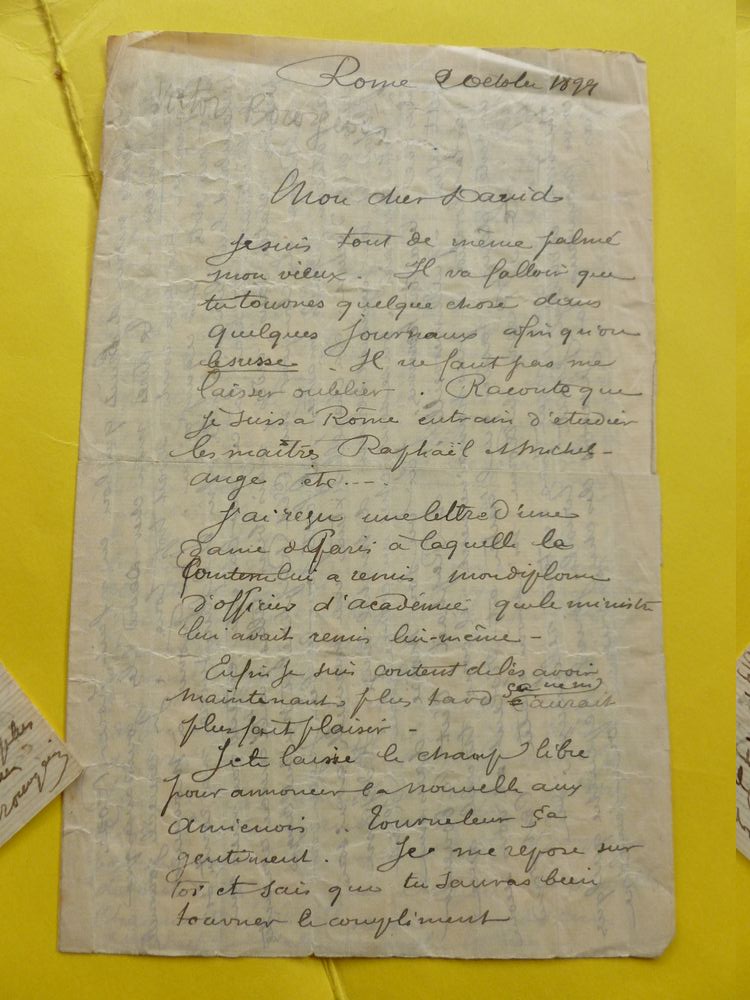 Rome 9 Octobre 1899
Victor Bourgeois
Mon cher David
Je suis tout de même palmé
mon vieux. Il va falloir que
tu tournes quelque chose dans
quelques journaux afin qu'on
le susse. Il ne faut pas me
laisser oublier. Raconte que
je suis a Rome entrain d'etudier
les maîtres Raphaël Michel-
ange etc....
J'ai reçu une lettre d'une
Dame de Paris à laquelle la
lui a remis mon diplome
d'officier d'académie que le ministre
lui avait remis lui-même -
Enfin je suis content de les avoir
maintenant plus tard ça m'aurait
plus fait plaisir -
Je te laisse le champ libre
pour annoncer la nouvelle aux
amienois. Tourne leur ça
gentiment. Je me repose sur
toi et sais que tu sauras bien
tourner le compliment